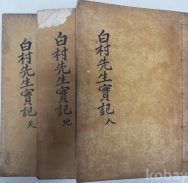 白村先生實記 天
白村先生實記 地
白村先生實記 人
kobay